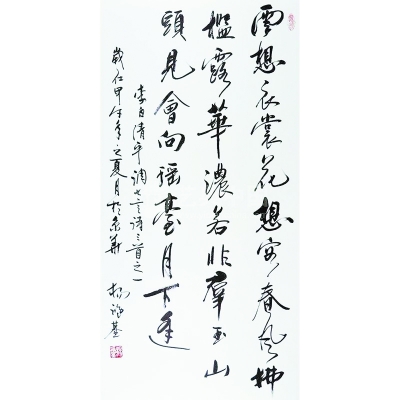 雲想衣裳花想容春风拂
檻露華濃若非羣玉山
頭見會向瑶臺月下逢
李白清平调七言诗三首之一
歲在甲午年之夏月於京華
杨